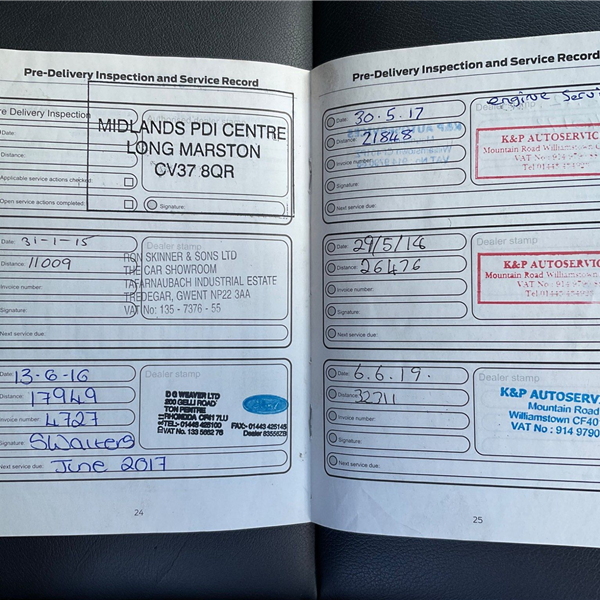 Pre-Delivery Inspection and Service Record
re Delivery Inspection
Date:
Distance:
Applicable service actions checked:
Open service actions completed:
Signature:
MIDLANDS PDI CENTRE
LONG MARSTON
CV37 8QR
Date: 31-1-15
Distance: 11009
Invoice number:
Signature:
Next service due:
Dealer stamp
RON SKINNER & SONS LTD
THE CAR SHOWROOM
TAFARNAUBACH INDUSTRIAL ESTATE
TREDEGAR, GWENT NP22 3AA
VAT No: 135 - 7376 - 55
Date: 13-6-16
Distance: 17949
Invoice number: 4727
Signature: SWalters
Next service due: June 2017
Dealer stamp
D G WEAVER LTD
200 GELLI ROAD
TON PENTRE
RHONDDA CF41 7LU
TEL:- 01443 425100 FAX:- 01443 425145
VAT No. 133 5662 76 Dealer 83556ZB
24
Pre-Delivery Inspection and Service Record
engine Servi
Date: 30.5.17
Distance: 21848
Invoice number:
Signature:
Next service due:
K&P AUTOSERVIC
Mountain Road Williamstown
VAT No
Tel
Date: 29/5/18
Distance: 26476
Invoice number:
Signature:
Next service due:
Dealer stamp
K&P AUTOSERVIC
Mountain Road Williamstown
VAT No
Tel
Date: 6.6.19.
Distance: 32711
Invoice number:
Signature:
Next service due:
Dealer stamp
K&P AUTOSERV
Mountain Road
Williamstown CF40
VAT No : 914 9790
25